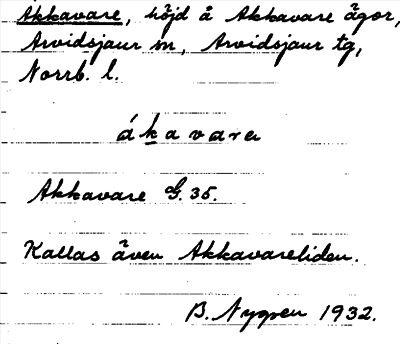 Akkavare, höjd å Akkavare ägor,
Arvidsjaur sn, Arvidsjaur tg,
Norrb. l.
ákavarɛ
Akkavare G. 35.
Kallas även Akkavareliden.
B. Nygren 1932.